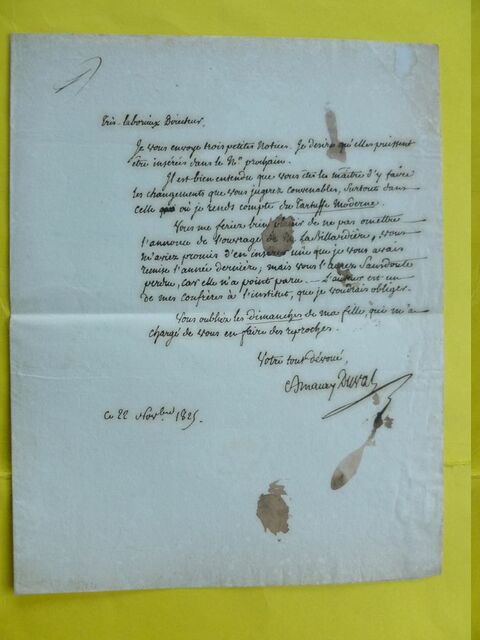 Très-laborieux Directeur,
Je vous envoye trois petites Notices. Je desire qu'elles puissent
être insérés dans le N.º prochain.
Il est bien entendu que vous êtes le maître d'y faire
les changements que vous jugerez convenables, surtout dans
celle où je rends compte du Tartuffe Moderne.
Vous me feriez bien plaisir de ne pas omettre
l'annonce de l'ouvrage de M. de la Billardière, vous
m'aviez promis d'en insérer une que je vous avais
remise l'année dernière; mais vous l'aurez sans doute
perdue, car elle n'a point paru. L'auteur est un
de mes confrères à l'institut, que je voudrais obliger.
Vous oubliez les dimanches de ma fille, qui m'a
chargé de vous en faire des reproches.
Votre tout dévoué,
Amaury Duval
Ce 22 Novbre 1825.